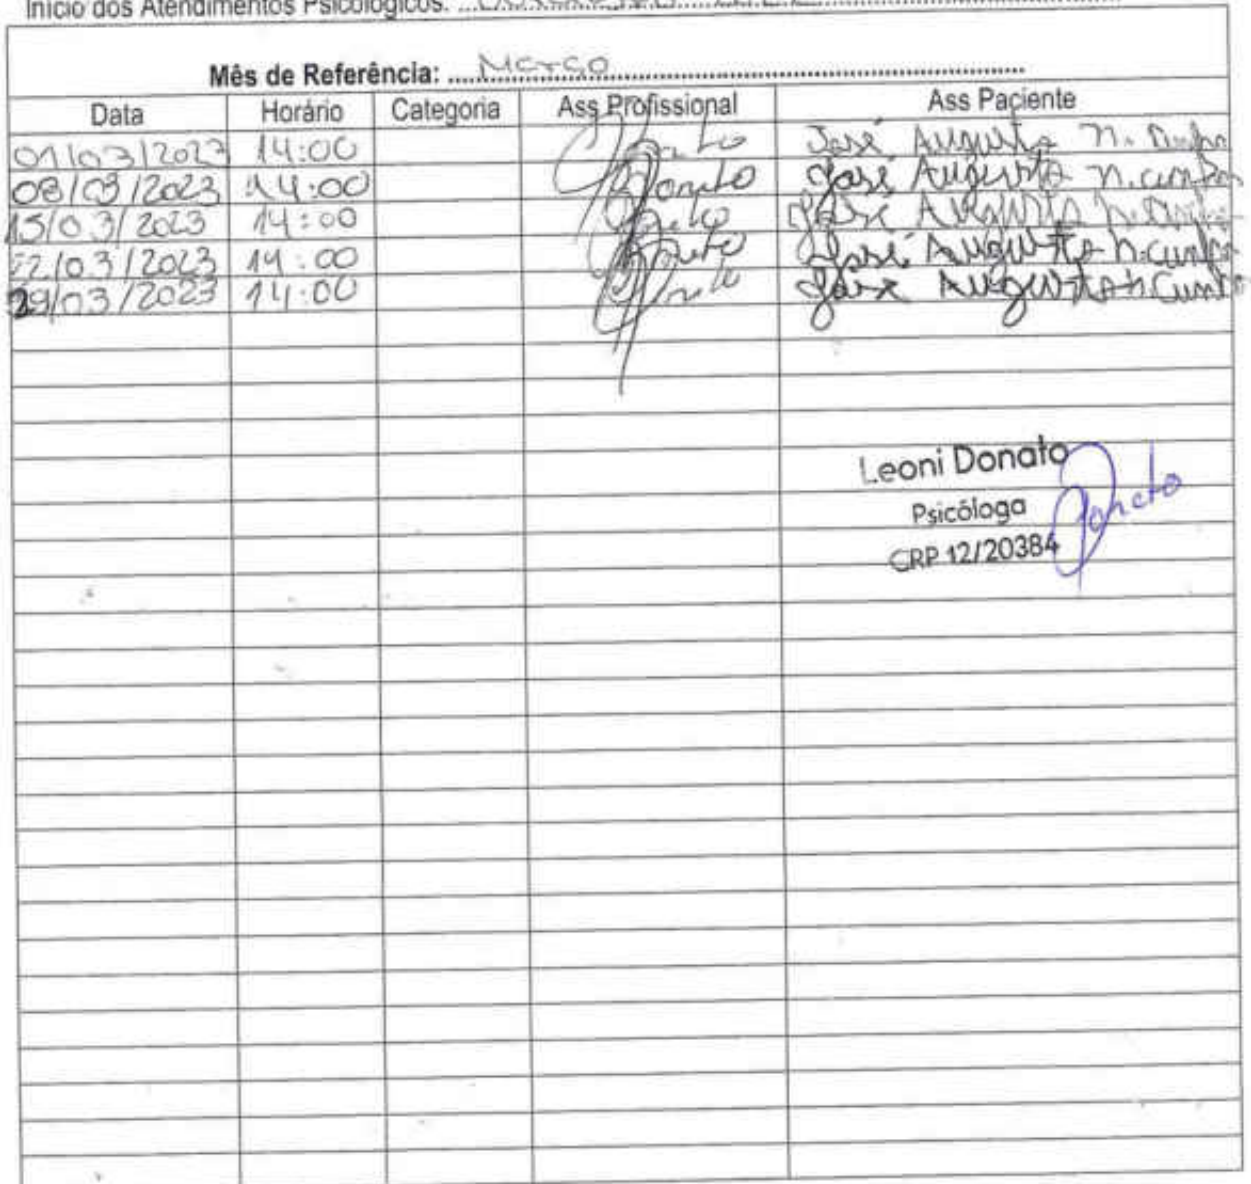 Início dos Atendimentos Psicológicos:
Mês de Referência: Março
Data Horário Categoria Ass Profissional Ass Paciente
01/03/2023 14:00 Donato José Augusto N. Cunha
08/03/2023 14:00 Donato José Augusto N. Cunha
15/03/2023 14:00 Donato José Augusto N. Cunha
22/03/2023 14:00 Donato José Augusto N. Cunha
29/03/2023 14:00 Donato José Augusto N. Cunha
Leoni Donato
Psicóloga Donato
CRP 12/20384